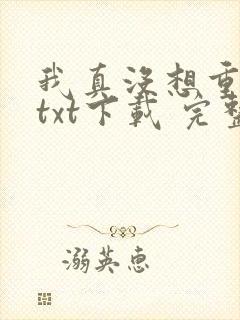 我真没想重
txt下载 完整
溺英惠